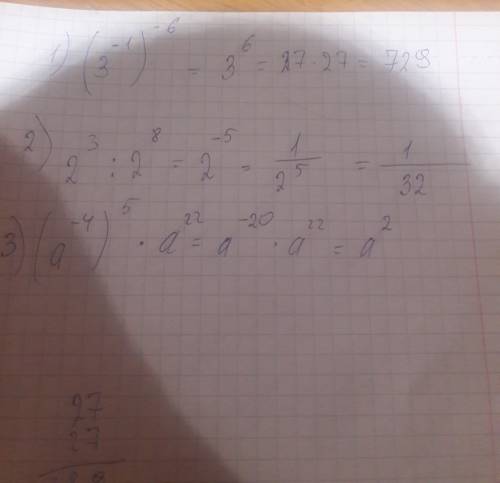 1) (3^{-1})^{-6} = 3^6 = 27 · 27 = 729
2) 2^3 : 2^8 = 2^{-5} = 1/2^5 = 1/32
3) (a^{-4})^5 · a^{22} = a^{-20} · a^{22} = a^2
27
27